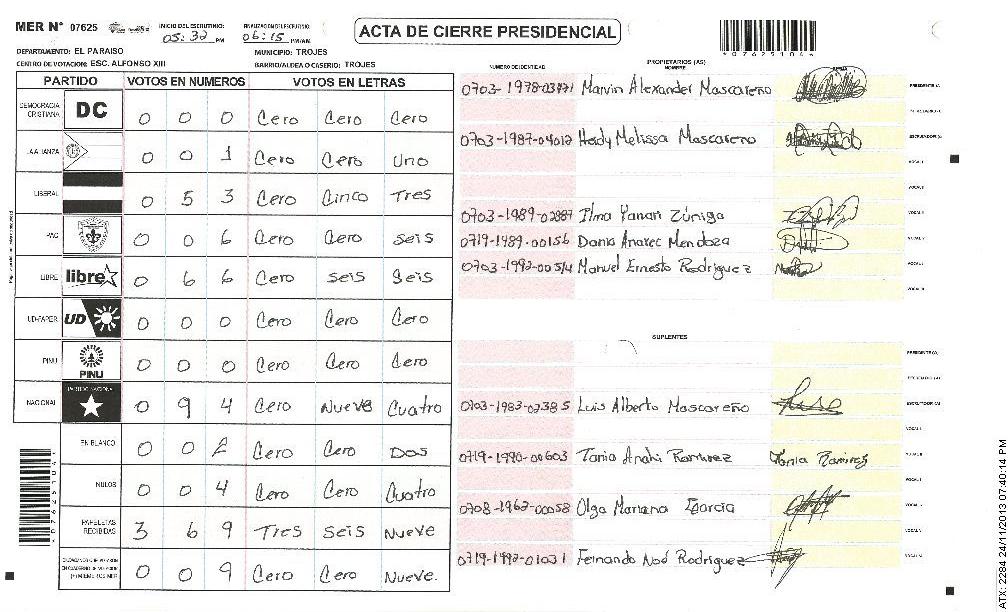 MER N° 07625 INICIO DEL ESCRUTINIO: 05:32 PM FINALIZACION DEL ESCRUTINIO: 06:15 PM/AM
ACTA DE CIERRE PRESIDENCIAL
*07625104*
DEPARTAMENTO: EL PARAISO MUNICIPIO: TROJES
CENTRO DE VOTACION: ESC. ALFONSO XIII BARRIO/ALDEA O CASERIO: TROJES
PARTIDO VOTOS EN NUMEROS VOTOS EN LETRAS
DEMOCRACIA CRISTIANA DC 0 0 0 Cero Cero Cero
LA ALIANZA 0 0 1 Cero Cero Uno
LIBERAL 0 5 3 Cero Cinco Tres
PAC 0 0 6 Cero Cero Seis
LIBRE libre 0 6 6 Cero Seis Seis
UD-FAPER UD 0 0 0 Cero Cero Cero
PINU PINU 0 0 0 Cero Cero Cero
NACIONAL PARTIDO NACIONAL 0 9 4 Cero Nueve Cuatro
EN BLANCO 0 0 2 Cero Cero Dos
NULOS 0 0 4 Cero Cero Cuatro
PAPELETAS RECIBIDAS 3 6 9 Tres Seis Nueve
0 0 9 Cero Cero Nueve.
NUMERO DE IDENTIDAD PROPIETARIOS (AS) NOMBRE FIRMA
Marvin Alexander Mascareño PRESIDENTE (A)
0703-1987-04012 Heidy Melissa Mascareño ESCRUTADOR(A)
0703-1989-02887 Ilma Yanari Zúniga
0719-1989-00156 Dania Anarec Mendoza
Manuel Ernesto Rodriguez
SUPLENTES
PRESIDENTE (A)
0703-1983-02385 Luis Alberto Mascareño ESCRUTADOR (A)
0719-1990-00603 Tania Anahi Ramirez Tania Ramirez
0708-1962-00058 Olga Mariana Garcia
0719-1992-01031 Fernando Noé Rodriguez
ATX: 2284 24/11/2013 07:40:14 PM